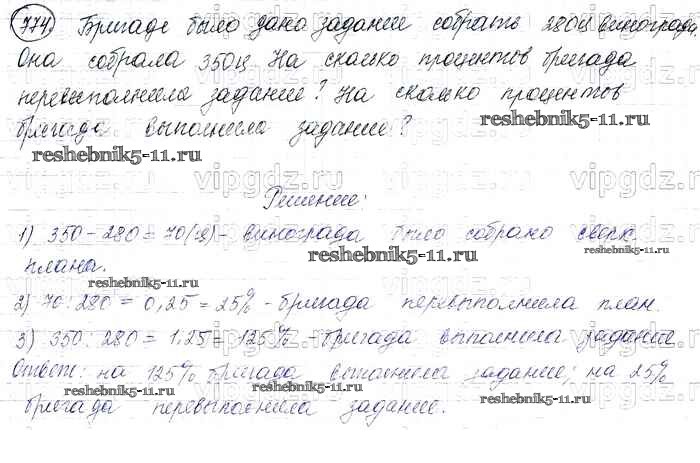 774. Бригаде было дано задание собрать 280ц винограда.
Она собрала 350ц. На сколько процентов бригада
перевыполнила задание? На сколько процентов
бригада выполнила задание?
reshebnik5-11.ru reshebnik5-11.ru
vipgdz.ru vipgdz.ru vipgdz.ru
Решение:
1) 350 - 280 = 70 (ц) - винограда было собрано сверх
reshebnik5-11.ru
плана.
reshebnik5-11.ru
2) 70 : 280 = 0,25 = 25% - бригада перевыполнила план.
3) 350 : 280 = 1,25 = 125% - бригада выполнила задание
Ответ: на 125% бригада выполнила задание; на 25%
reshebnik5-11.ru reshebnik5-11.ru reshebnik5-11.ru
бригада перевыполнила задание.